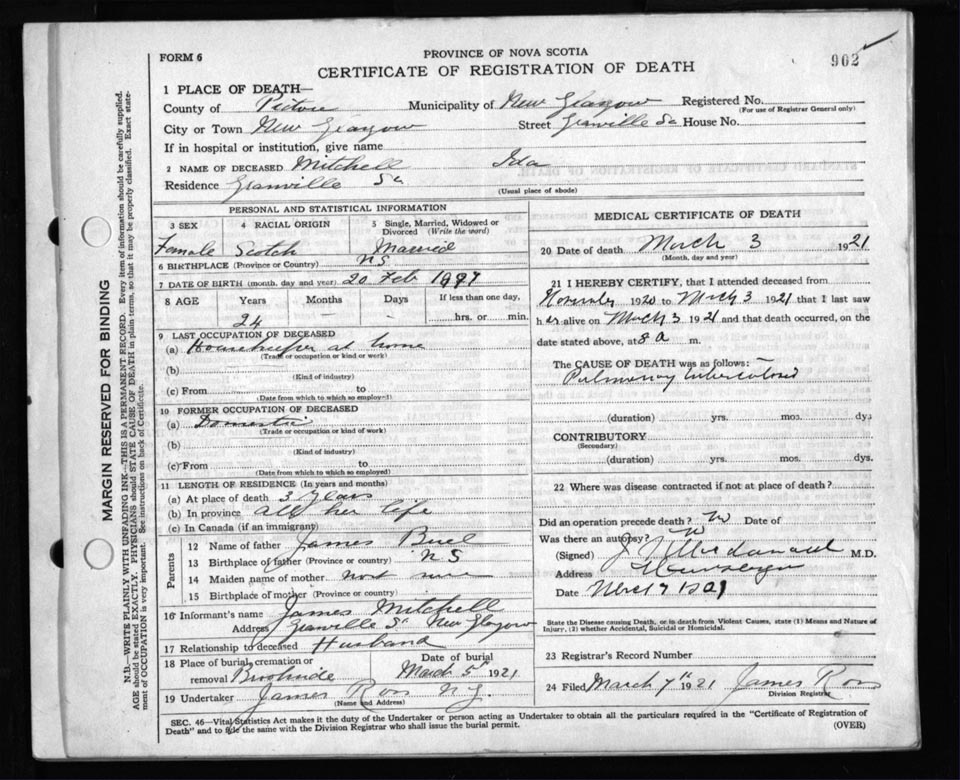 FORM 6
PROVINCE OF NOVA SCOTIA
902
CERTIFICATE OF REGISTRATION OF DEATH
1 PLACE OF DEATH—
County of Pictou Municipality of New Glasgow Registered No.
(For use of Registrar General only)
City or Town New Glasgow Street Granville St House No.
If in hospital or institution, give name
2 NAME OF DECEASED Mitchell Ida
Residence Granville St
(Usual place of abode)
PERSONAL AND STATISTICAL INFORMATION
3 SEX 4 RACIAL ORIGIN 5 Single, Married, Widowed or Divorced (Write the word)
Female Scotch Married
6 BIRTHPLACE (Province or Country) NS
7 DATE OF BIRTH (month, day and year) 20 Feb
8 AGE Years Months Days If less than one day,
24 hrs. or min.
9 LAST OCCUPATION OF DECEASED
(a) Housekeeper at home
(Trade or occupation or kind or work)
(b)
(Kind of industry)
(c) From to
(Date from which to which so employed)
10 FORMER OCCUPATION OF DECEASED
(a) Domestic
(Trade or occupation or kind of work)
(b)
(Kind of industry)
(c) From to
(Date from which to which so employed)
11 LENGTH OF RESIDENCE (In years and months)
(a) At place of death 3 years
(b) In province all her life
(c) In Canada (if an immigrant)
Parents
12 Name of father James
13 Birthplace of father (Province or country) NS
14 Maiden name of mother
15 Birthplace of mother (Province or country)
16 Informant's name James Mitchell
Address Granville St New Glasgow
17 Relationship to deceased Husband
18 Place of burial, cremation or removal Date of burial March 5th 1921
19 Undertaker James Ross N G
(Name and Address)
MEDICAL CERTIFICATE OF DEATH
20 Date of death March 3 1921
(Month, day and year)
21 I HEREBY CERTIFY, that I attended deceased from
November 1920 to March 3 1921 that I last saw
her alive on March 3 1921 and that death occurred, on the
date stated above, at 8 a m.
The CAUSE OF DEATH was as follows:
Pulmonary tuberculosis
(duration) yrs. mos. dys
CONTRIBUTORY
(Secondary)
(duration) yrs. mos. dys.
22 Where was disease contracted if not at place of death?
Did an operation precede death? no Date of
Was there an autopsy? no
(Signed) M.D.
Address
Date
State the Disease causing Death, or in death from Violent Causes, state (1) Means and Nature of
Injury, (2) whether Accidental, Suicidal or Homicidal.
23 Registrar's Record Number
24 Filed March 7th 1921 James Ross
Division Registrar
SEC. 46—Vital Statistics Act makes it the duty of the Undertaker or person acting as Undertaker to obtain all the particulars required in the "Certificate of Registration of
Death" and to file the same with the Division Registrar who shall issue the burial permit.
(OVER)
MARGIN RESERVED FOR BINDING
N.B.—WRITE PLAINLY WITH UNFADING INK—THIS IS A PERMANENT RECORD. Every item of information should be carefully supplied.
AGE should be stated EXACTLY. PHYSICIANS should STATE CAUSE OF DEATH in plain terms, so that it may be properly classified. Exact statement
of OCCUPATION is very important. See instructions on back of Certificate.